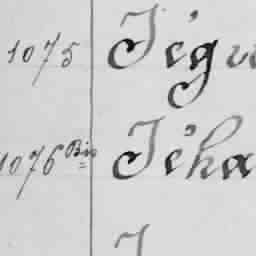 1075 Jégu
1076 Bis Jéha